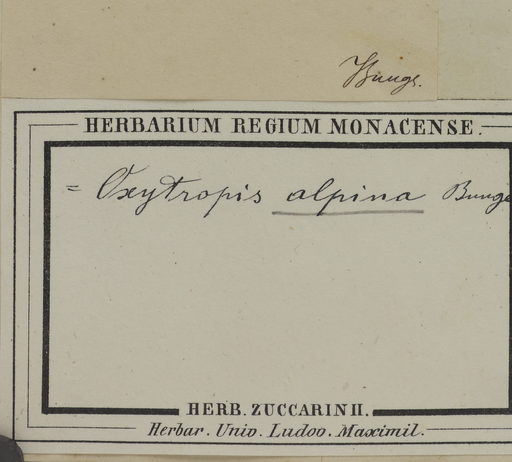 Bunge.
HERBARIUM REGIUM MONACENSE.
= Oxytropis alpina Bunge
HERB. ZUCCARINII.
Herbar. Univ. Ludov. Maximil.